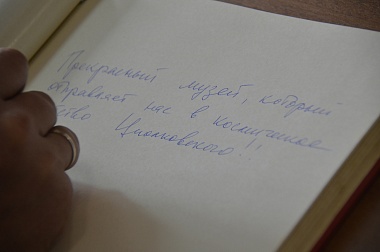 Прекрасный музей, который
отправляет нас в космическое
Циолковского!!